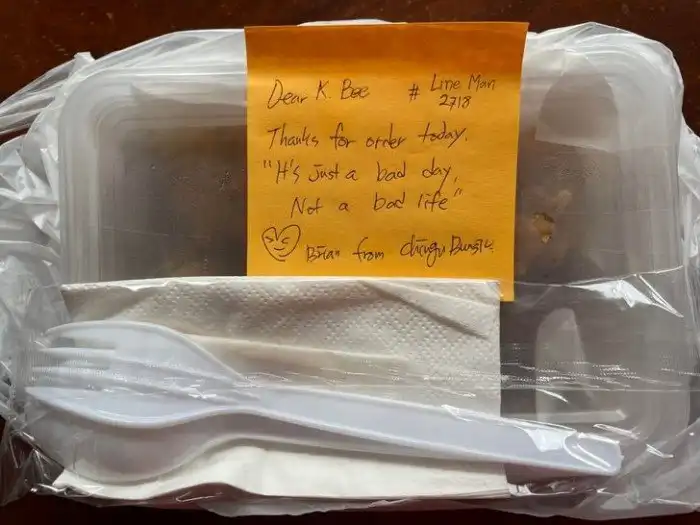 Dear K. Bee # Line Man
2718
Thanks for order today.
"It's just a bad day,
Not a bad life"
SVC Brian from chingu